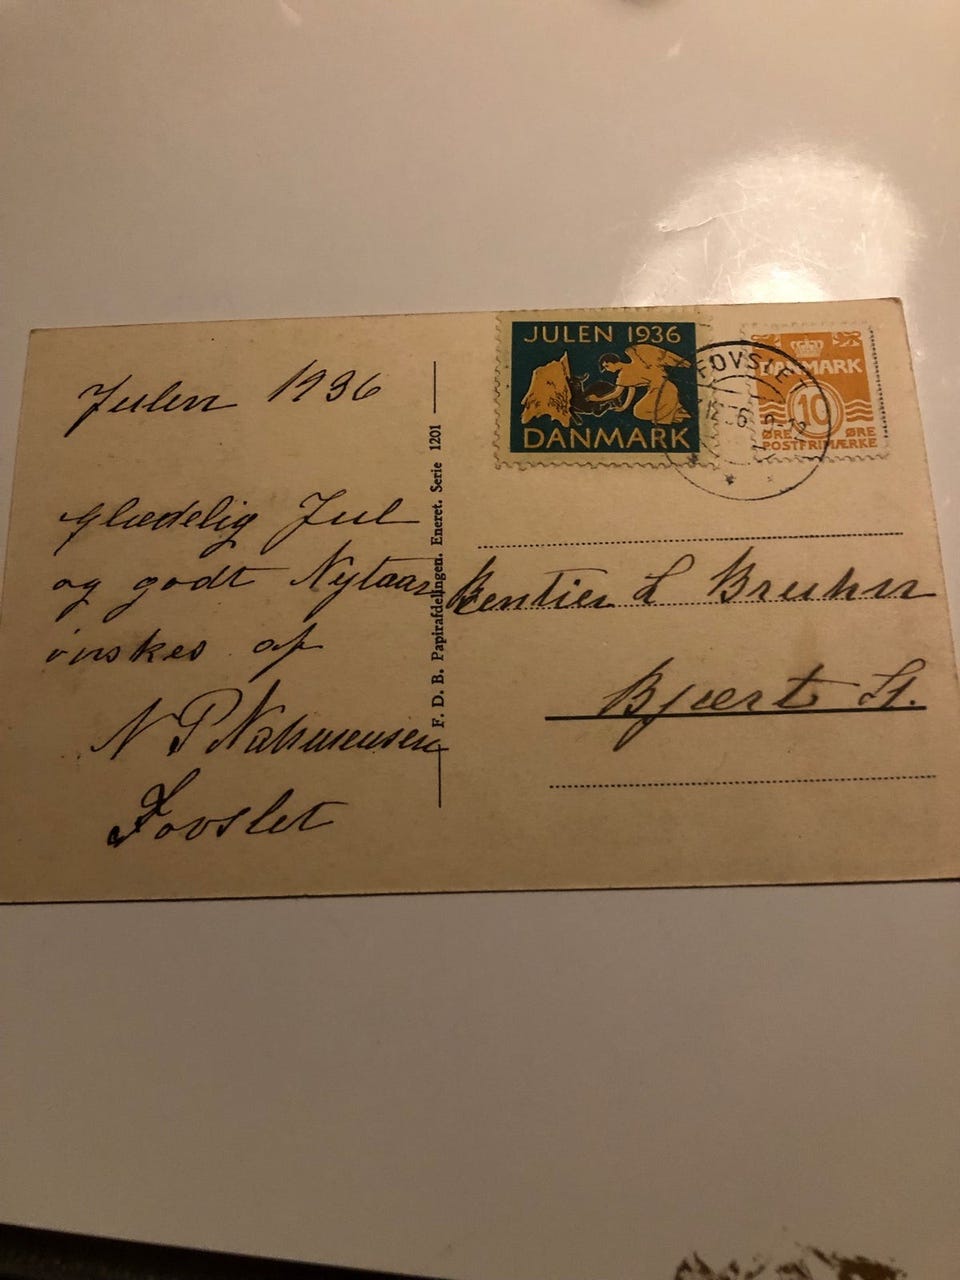 Julen 1936
Glædelig Jul
og godt Nytaar
ønskes af
N P Rasmussen
Fovslet
F. D. B. Papirafdelingen. Eneret. Serie 1201
JULEN 1936
DANMARK
FOVSLET
DANMARK
10
ØRE ØRE
POSTFRIMÆRKE
Rentier L Bruhn
Bjært St.